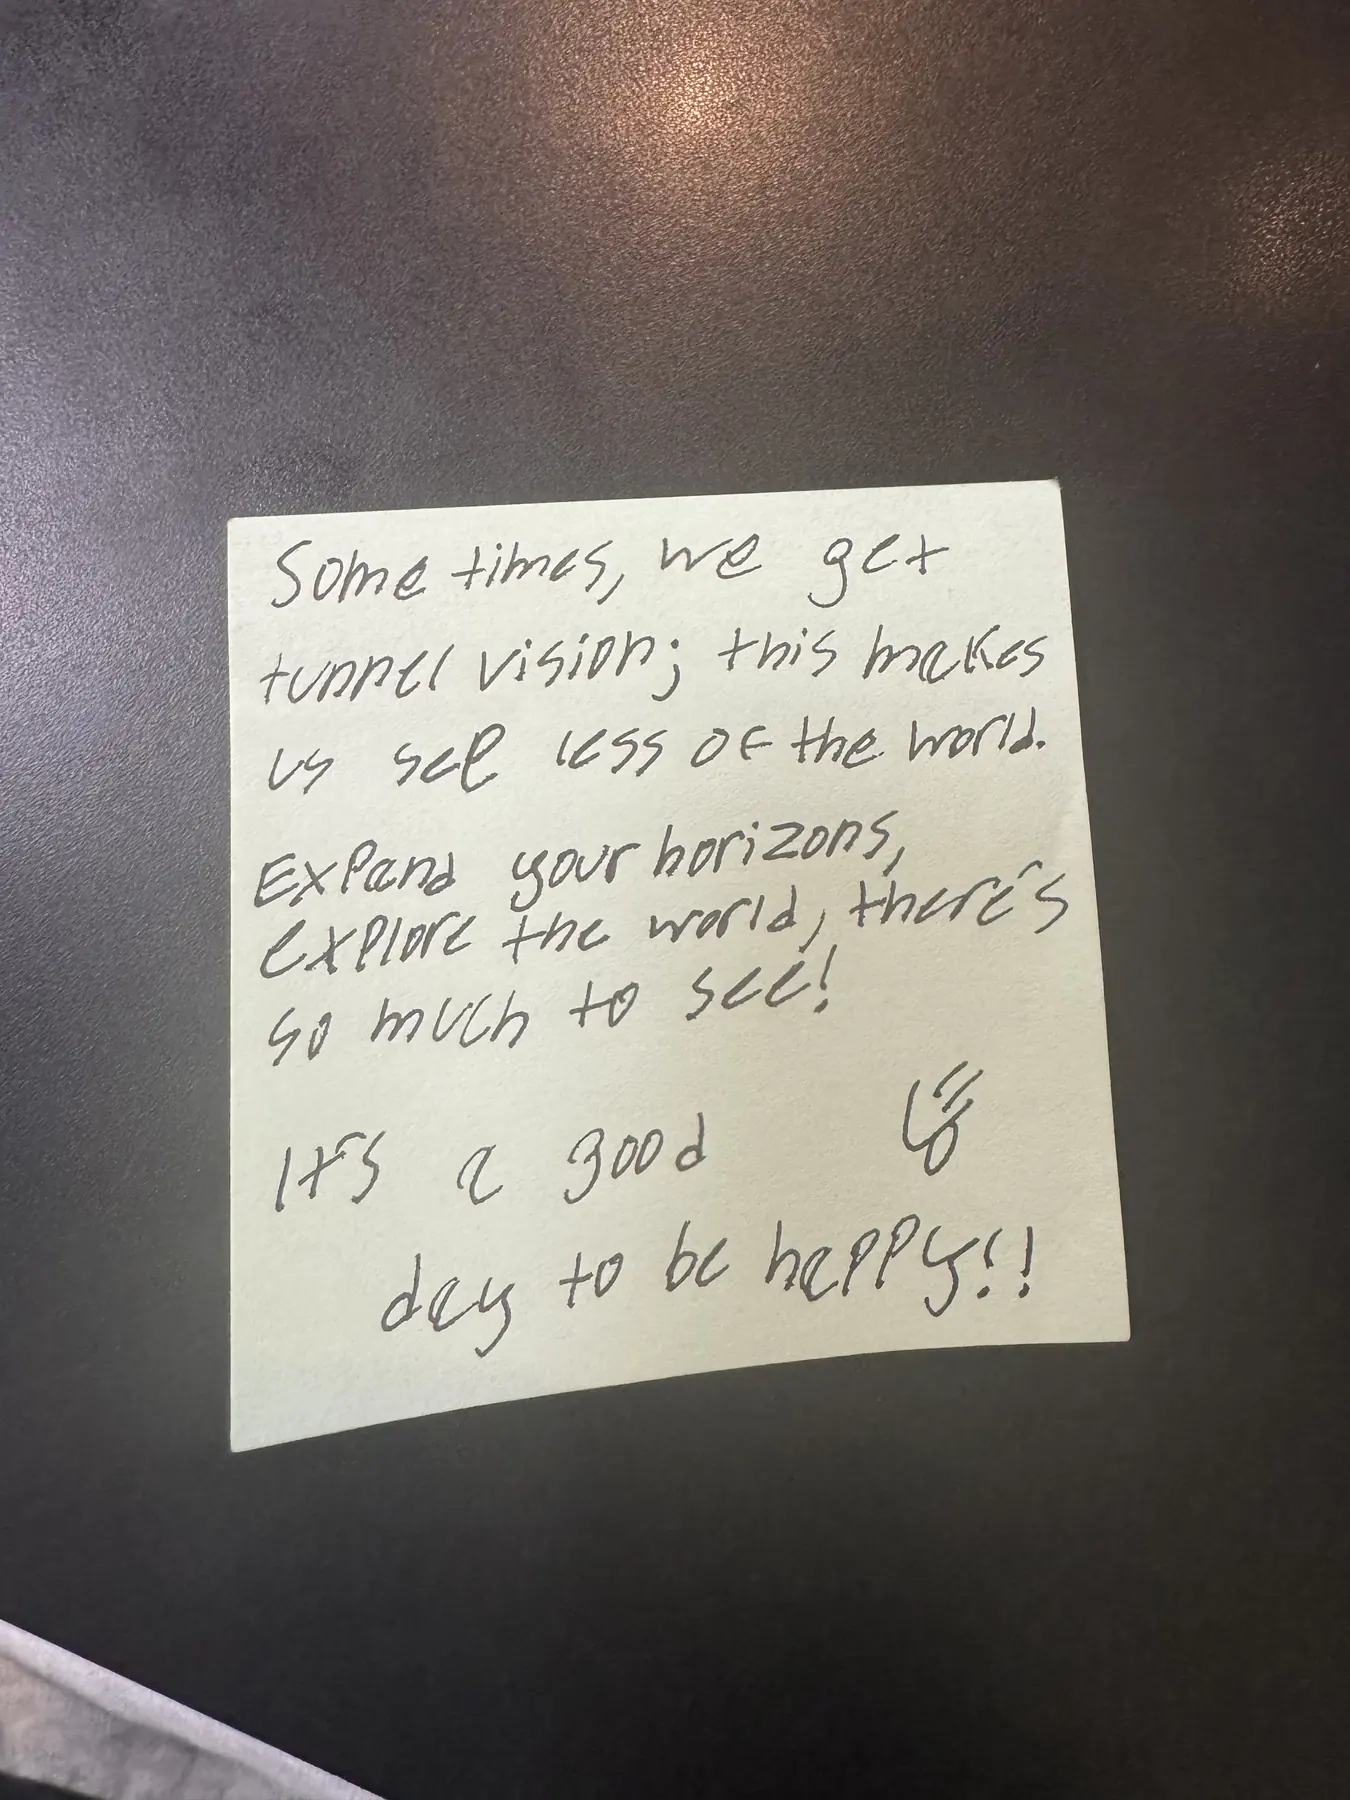 Sometimes, we get
tunnel vision; this makes
us see less of the world.
Expand your horizons,
explore the world, there's
so much to see!
It's a good
day to be happy!!